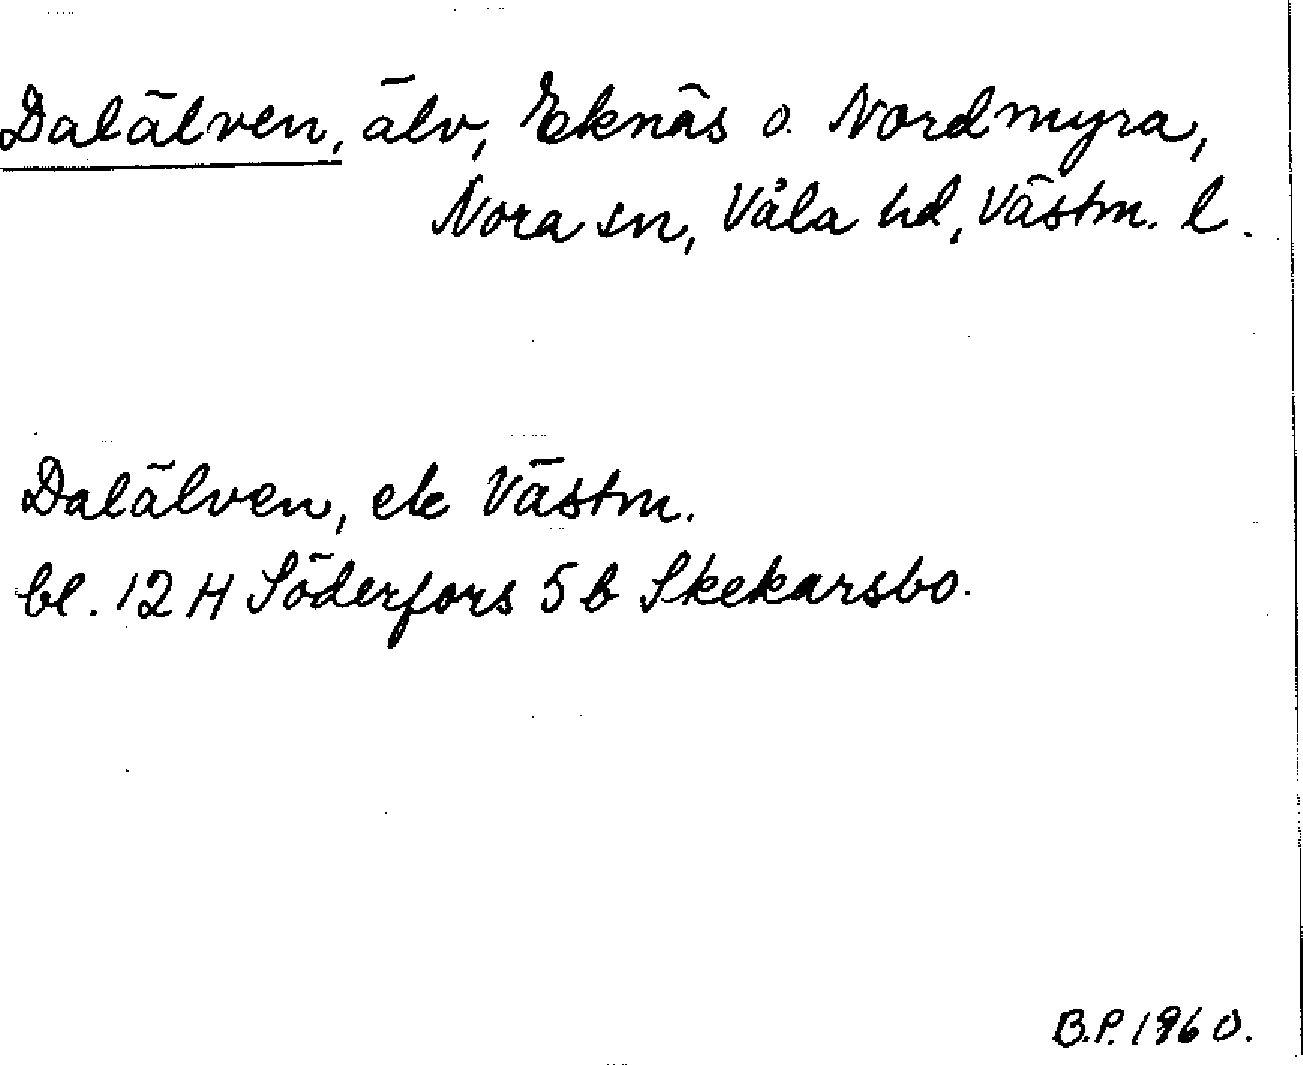 Dalälven, älv, Eknäs o. Nordmyra,
Nora sn, Våla hd, Västm. l.
Dalälven, ek Västm.
bl. 12 H Söderfors 5 b Skekarsbo.
B.P. 1960.